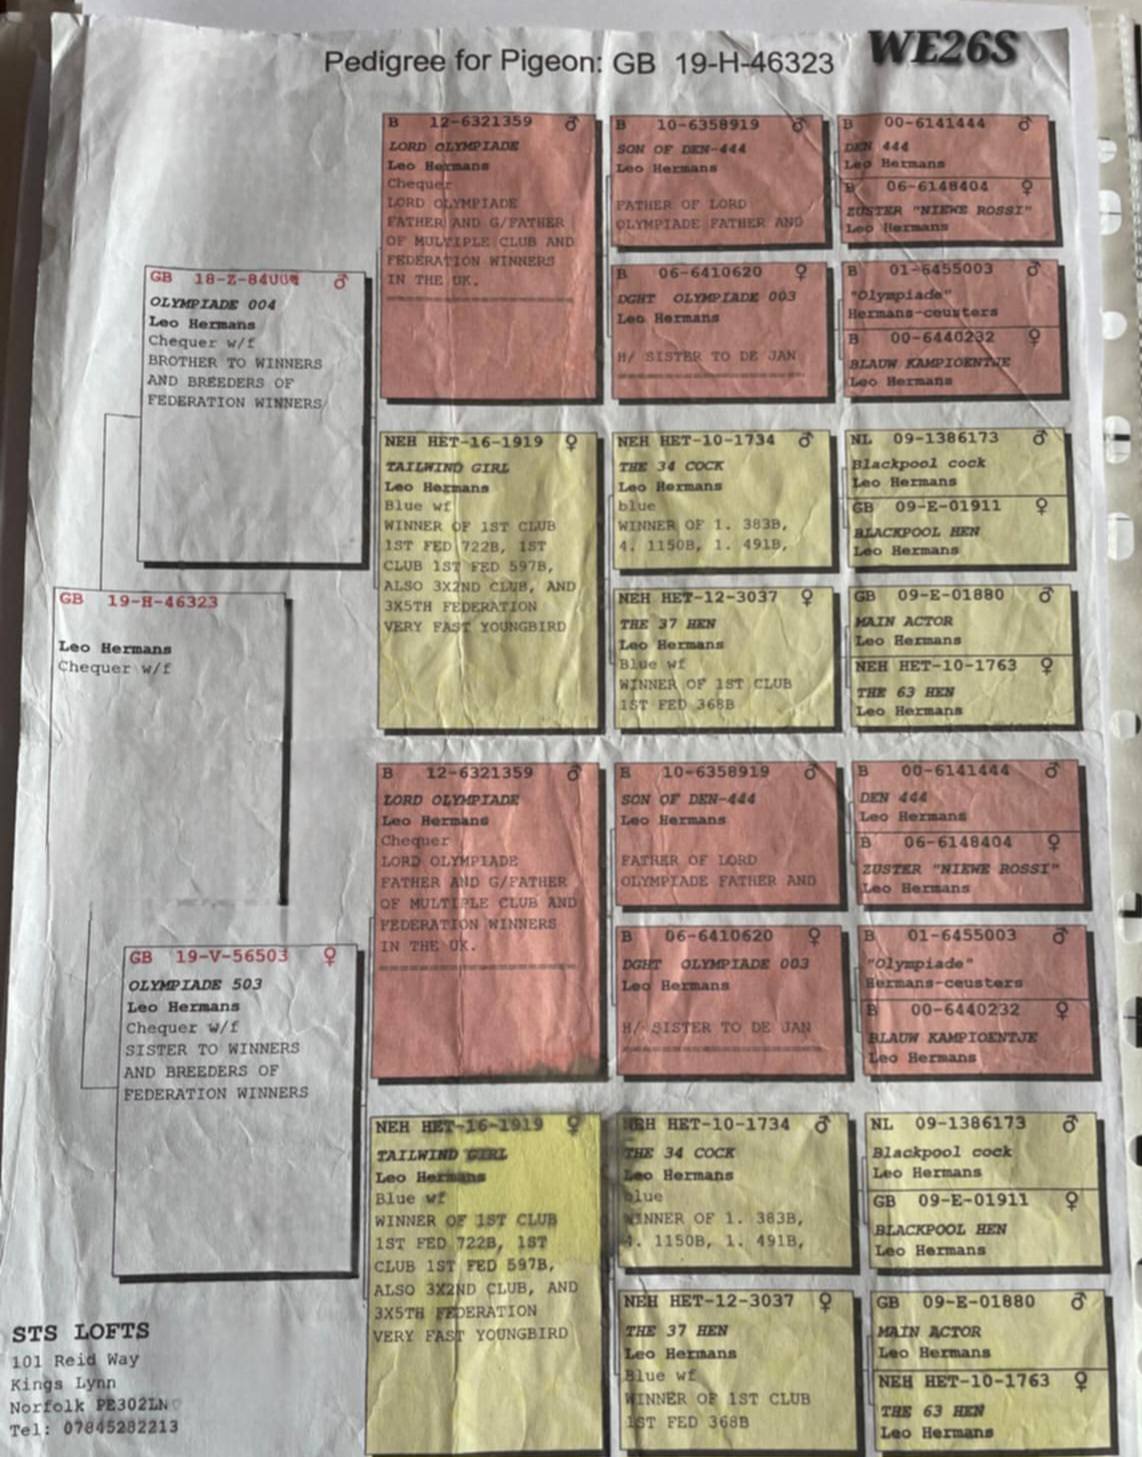 WE26S
Pedigree for Pigeon: GB 19-H-46323
GB 19-H-46323
Leo Hermans
Chequer w/f
GB ♂
OLYMPIADE 004
Leo Hermans
Chequer w/f
BROTHER TO WINNERS
AND BREEDERS OF
FEDERATION WINNERS
GB 19-V-56503 ♀
OLYMPIADE 503
Leo Hermans
Chequer w/f
SISTER TO WINNERS
AND BREEDERS OF
FEDERATION WINNERS
B 12-6321359 ♂
LORD OLYMPIADE
Leo Hermans
Chequer
LORD OLYMPIADE
FATHER AND G/FATHER
OF MULTIPLE CLUB AND
FEDERATION WINNERS
IN THE UK.
NEH HET-16-1919 ♀
TAILWIND GIRL
Leo Hermans
Blue wf
WINNER OF 1ST CLUB
1ST FED 722B, 1ST
CLUB 1ST FED 597B,
ALSO 3X2ND CLUB, AND
3X5TH FEDERATION
VERY FAST YOUNGBIRD
B 12-6321359 ♂
LORD OLYMPIADE
Leo Hermans
Chequer
LORD OLYMPIADE
FATHER AND G/FATHER
OF MULTIPLE CLUB AND
FEDERATION WINNERS
IN THE UK.
NEH HET-16-1919 ♀
TAILWIND GIRL
Leo Hermans
Blue wf
WINNER OF 1ST CLUB
1ST FED 722B, 1ST
CLUB 1ST FED 597B,
ALSO 3X2ND CLUB, AND
3X5TH FEDERATION
VERY FAST YOUNGBIRD
B 10-6358919 ♂
SON OF DEN-444
Leo Hermans
FATHER OF LORD
OLYMPIADE FATHER AND
B 06-6410620 ♀
DGHT OLYMPIADE 003
Leo Hermans
H/ SISTER TO DE JAN
NEH HET-10-1734 ♂
THE 34 COCK
Leo Hermans
blue
WINNER OF 1. 383B,
4. 1150B, 1. 491B,
NEH HET-12-3037 ♀
THE 37 HEN
Leo Hermans
Blue wf
WINNER OF 1ST CLUB
1ST FED 368B
B 10-6358919 ♂
SON OF DEN-444
Leo Hermans
FATHER OF LORD
OLYMPIADE FATHER AND
B 06-6410620 ♀
DGHT OLYMPIADE 003
Leo Hermans
H/ SISTER TO DE JAN
NEH HET-10-1734 ♂
THE 34 COCK
Leo Hermans
blue
WINNER OF 1. 383B,
4. 1150B, 1. 491B,
NEH HET-12-3037 ♀
THE 37 HEN
Leo Hermans
Blue wf
WINNER OF 1ST CLUB
1ST FED 368B
B 00-6141444 ♂
DEN 444
Leo Hermans
B 06-6148404 ♀
ZUSTER "NIEWE ROSSI"
Leo Hermans
B 01-6455003 ♂
"Olympiade"
Hermans-ceusters
B 00-6440232 ♀
BLAUW KAMPIOENTJE
Leo Hermans
NL 09-1386173 ♂
Blackpool cock
Leo Hermans
GB 09-E-01911 ♀
BLACKPOOL HEN
Leo Hermans
GB 09-E-01880 ♂
MAIN ACTOR
Leo Hermans
NEH HET-10-1763 ♀
THE 63 HEN
Leo Hermans
B 00-6141444 ♂
DEN 444
Leo Hermans
B 06-6148404 ♀
ZUSTER "NIEWE ROSSI"
Leo Hermans
B 01-6455003 ♂
"Olympiade"
Hermans-ceusters
B 00-6440232 ♀
BLAUW KAMPIOENTJE
Leo Hermans
NL 09-1386173 ♂
Blackpool cock
Leo Hermans
GB 09-E-01911 ♀
BLACKPOOL HEN
Leo Hermans
GB 09-E-01880 ♂
MAIN ACTOR
Leo Hermans
NEH HET-10-1763 ♀
THE 63 HEN
Leo Hermans
STS LOFTS
101 Reid Way
Kings Lynn
Norfolk PE302LN
Tel: 07845282213